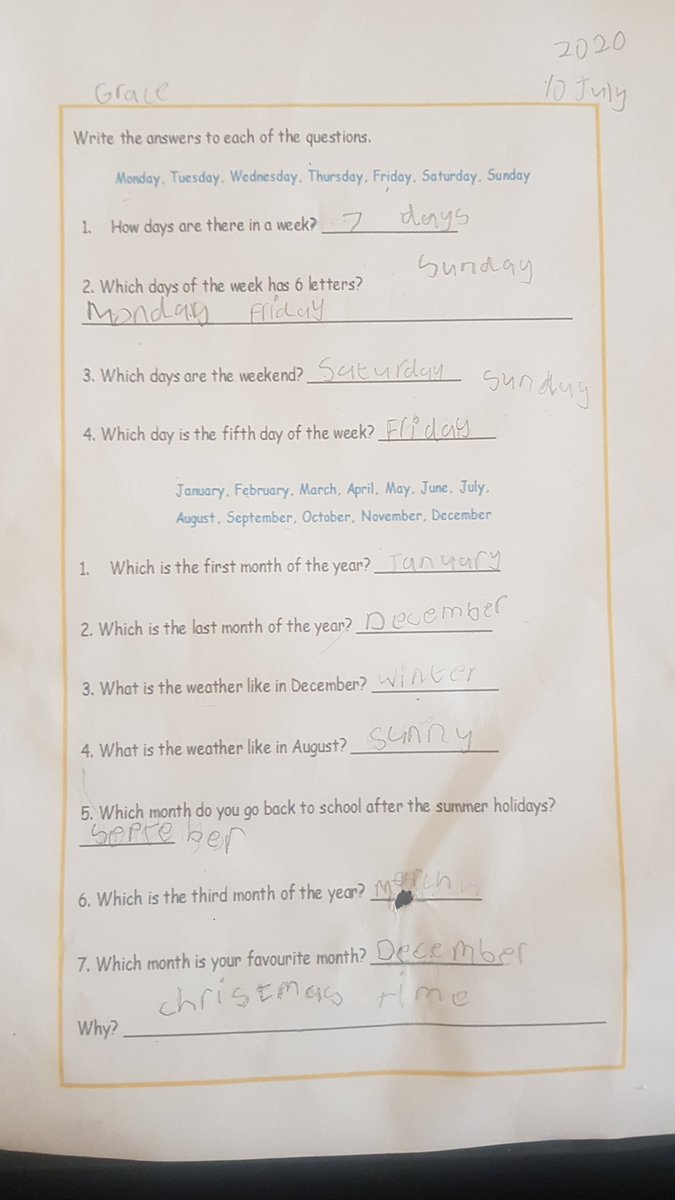 2020
Grace
10 July
Write the answers to each of the questions.
Monday, Tuesday, Wednesday, Thursday, Friday, Saturday, Sunday
1. How days are there in a week? 7 days
Sunday
2. Which days of the week has 6 letters?
Monday Friday
3. Which days are the weekend? Saturday Sunday
4. Which day is the fifth day of the week? Friday
January, February, March, April, May, June, July,
August, September, October, November, December
1. Which is the first month of the year? January
2. Which is the last month of the year? December
3. What is the weather like in December? winter
4. What is the weather like in August? sunny
5. Which month do you go back to school after the summer holidays?
Septe ber
6. Which is the third month of the year? March
7. Which month is your favourite month? December
christmas time
Why?